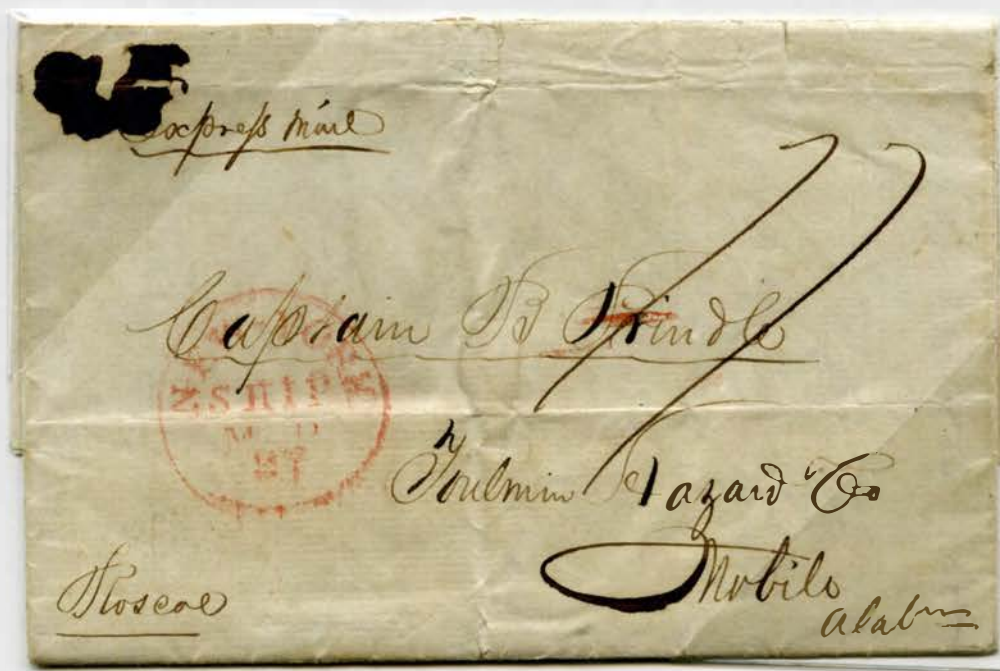 Express Mail
77
Captain B Prindle
SHIP
27
Toulmin Hazard & Co
Mobile
Alabm
Roscoe